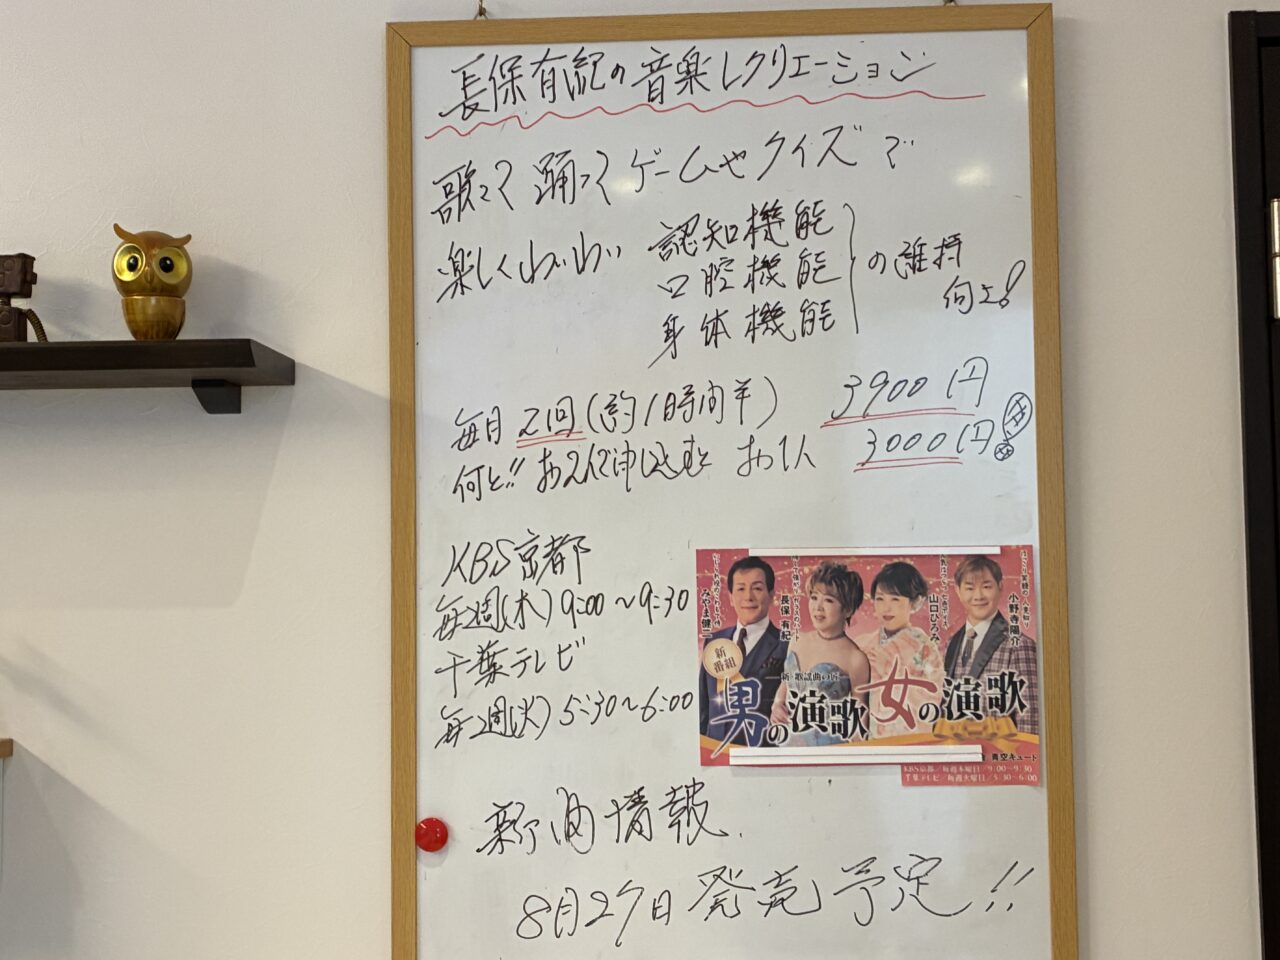 長保有紀の音楽レクリエーション
歌って踊ってゲームやクイズで
楽しくわいわい
認知機能
口腔機能
身体機能
の維持
向上!
毎月2回(約1時間半) 3900円
何と!!お2人で申し込むと お1人 3000円
KBS京都
毎週(木)9:00〜9:30
千葉テレビ
毎週(火)5:30〜6:00
みやま健二
長保有紀
山口ひろみ
小野寺陽介
新番組
新・歌謡曲の匠
男の演歌 女の演歌
青空キュート
KBS京都/毎週木曜日/9:00〜9:30
千葉テレビ/毎週火曜日/5:30〜6:00
新曲情報
8月27日発売予定!!